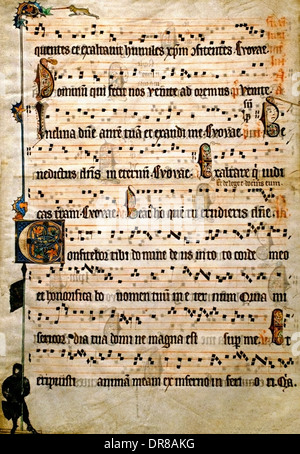 quentes et exaltant humiles xpm ɔfitentes Evovae.
Dominū qui fecit nos venite adoremus Venite.
Inclina dn̄e aurē tuā et exaudi me Evovae. Be
nedictus dn̄s in eternū Evovae. Exaltare q̄ iudi
cas Evovae. ho quē tu erudieris dn̄e.
Confitebor tibi do mine de us in to to corde meo
et honorifica bo nomen tuū in e ter num Quia mi
sericor dia tua domi ne magna est sup me.
eripuisti animam meam ex inferno in feri o ri Qa
alamy
DR8AKG